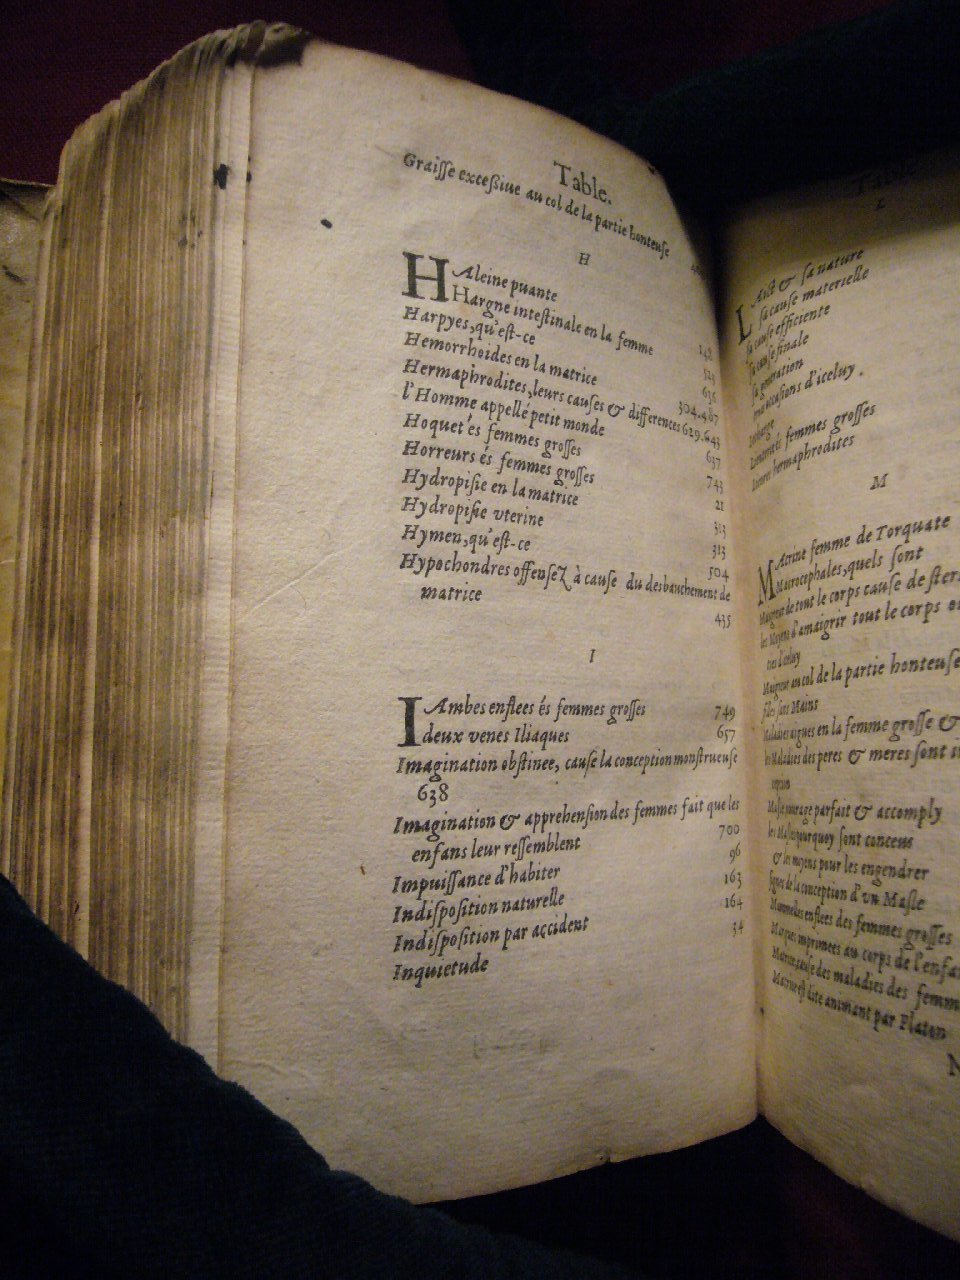 Table.
Graiſſe exceſsiue au col de la partie honteuſe
H
HAleine puante
Hargne inteſtinale en la femme 148
Harpyes,qu'eſt-ce 323
Hemorrhoides en la matrice 636
Hermaphrodites,leurs cauſes & differences 304.487
l'Homme appellé petit monde 629.643
Hoquet és femmes groſſes 637
Horreurs és femmes groſſes 743
Hydropiſie en la matrice 21
Hydropiſie vterine 313
Hymen,qu'eſt-ce 313
Hypochondres offenſeZ à cauſe du desbauchement de 504
matrice 435
I
IAmbes enflees és femmes groſſes
deux venes Iliaques 749
Imagination obſtinee, cauſe la conception monſtrueuſe 657
638
Imagination & apprehenſion des femmes fait que les
enfans leur reſſemblent 700
Impuiſſance d'habiter 96
Indiſpoſition naturelle 163
Indiſpoſition par accident 164
Inquietude 34
L
LAict & ſa nature
ſa cauſe materielle
ſa cauſe efficiente
ſa cauſe finale
ſa generation
occaſions d'iceluy.
femmes groſſes
hermaphrodites
M
MAtrine femme de Torquate
Macrocephales,quels ſont
Maigreur de tout le corps cauſe de
les Moyens d'amaigrir tout le corps
d'iceluy
Maigreur au col de la partie honteuſe
ſans Mains
Maladies aigues en la femme groſſe &
les Maladies des peres & meres ſont
Maſle ouurage parfait & accomply
les Maſles pourquoy ſont conceus
& les moyens pour les engendrer
ſignes de la conception d'vn Maſle
Mammelles enflees des femmes groſſes
Marques imprimees au corps de
Matrice,cauſe des maladies des
Matrice eſt dite animant par Platon